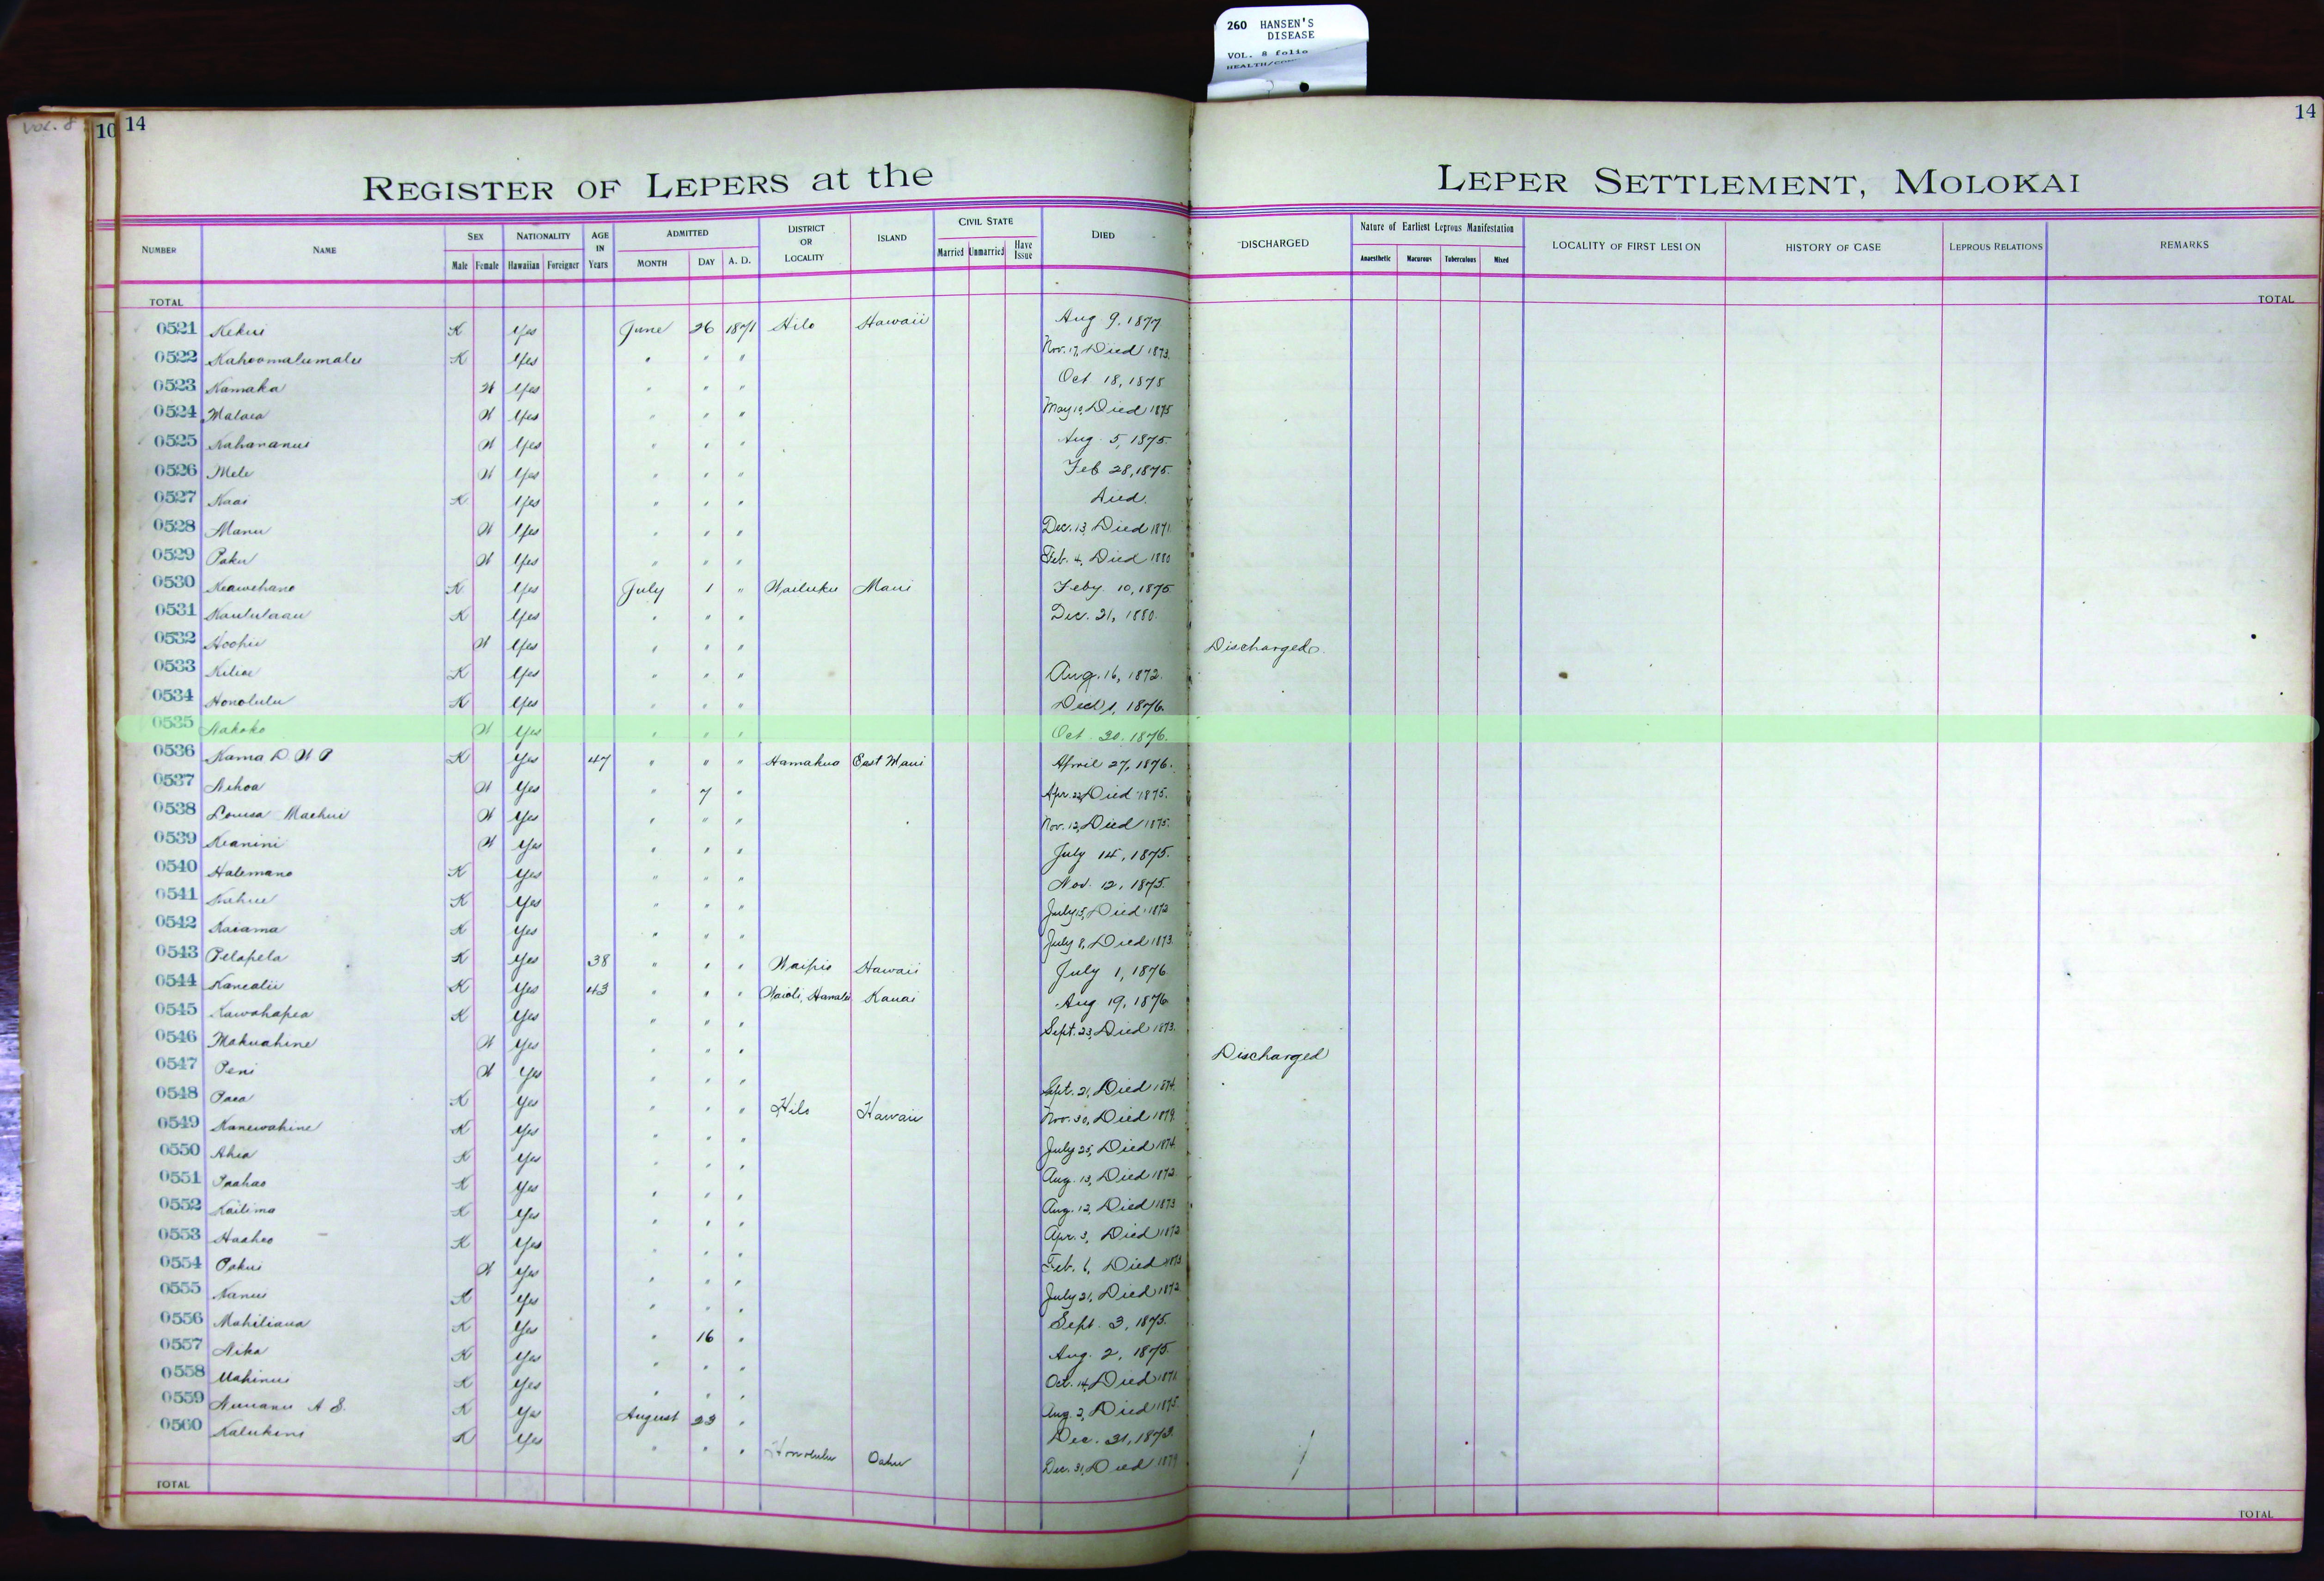 260 HANSEN'S
DISEASE
VOL. 8 folio
VOL. 8
10 14 14
REGISTER OF LEPERS at the LEPER SETTLEMENT, MOLOKAI
NUMBER NAME SEX Male Female NATIONALITY Hawaiian Foreigner AGE IN Years ADMITTED MONTH DAY A. D. DISTRICT OR LOCALITY ISLAND CIVIL STATE Married Unmarried Have Issue DIED DISCHARGED Nature of Earliest Leprous Manifestation Anaesthetic Macurous Tuberculous Mixed LOCALITY OF FIRST LESION HISTORY OF CASE LEPROUS RELATIONS REMARKS
TOTAL TOTAL
0521 Kekui K Yes June 26 1871 Hilo Hawaii Aug 9, 1877
0522 Kahoomalumalu K Yes " " " Nov. 17, Died 1873.
0523 Kamaka W Yes " " " Oct 18, 1875
0524 Malaea W Yes " " " May 10, Died 1875
0525 Kahananui W Yes " " " Aug. 5, 1875.
0526 Mele W Yes " " " Feb 28, 1875.
0527 Kaai K Yes " " " Died.
0528 Manu W Yes " " " Dec. 13, Died 1871
0529 Paku W Yes " " " Feb. 4, Died 1880
0530 Keawehano K Yes July 1 " Wailuku Maui Feby 10, 1875
0531 Kaululaau K Yes " " " Dec. 21, 1880.
0532 Hoohii W Yes " " " Discharged.
0533 Kiliae K Yes " " " Aug. 16, 1872.
0534 Honolulu K Yes " " " 1, 1876.
0535 Nakoko W Yes " " " Oct 20. 1876.
0536 Kama D W P K Yes 47 " " " Hamakua East Maui April 27, 1876.
0537 Nihoa W Yes " 7 " Apr. 22, Died 1875.
0538 Louisa Maehui W Yes " " " Nov. 12, Died 1875.
0539 Keanini W Yes " " " July 14, 1875.
0540 Halemano K Yes " " " Nov. 12, 1875.
0541 Kahue K Yes " " " July 15, Died 1872
0542 Kaiama K Yes " " " July 8, Died 1873.
0543 Pelapela K Yes 38 " " " Waipio Hawaii July 1, 1876
0544 Kanealii K Yes 43 " " " Waioli, Hanalei Kauai Aug 19, 1876
0545 Kawahapea K Yes " " " Sept. 23, Died 1873.
0546 Makuahine W Yes " " " Discharged
0547 Peni W Yes " " " Sept. 21, Died 1874.
0548 Paea K Yes " " " Hilo Hawaii Nov. 30, Died 1879.
0549 Kanewahine K Yes " " " July 25, Died 1874.
0550 Ahia K Yes " " " Aug. 13, Died 1872.
0551 Paahao K Yes " " " Aug. 12, Died 1873
0552 Kailima K Yes " " " Apr. 3, Died 1872
0553 Haaheo K Yes " " " Feb. 6, Died 1873
0554 Pakui W Yes " " " July 21, Died 1872
0555 Nanui K Yes " " " Sept. 3, 1875.
0556 Mahiliaua K Yes " 16 " Aug. 2, 1875.
0557 Nika K Yes " " " Oct. 14, Died 1871.
0558 Mahinui K Yes " " " Aug. 2, Died 1875.
0559 Nuuanu A S. K Yes August 23 " Dec. 31, 1873.
0560 Kalukini K Yes " " " Honolulu Oahu Dec. 31, Died 1879
TOTAL TOTAL